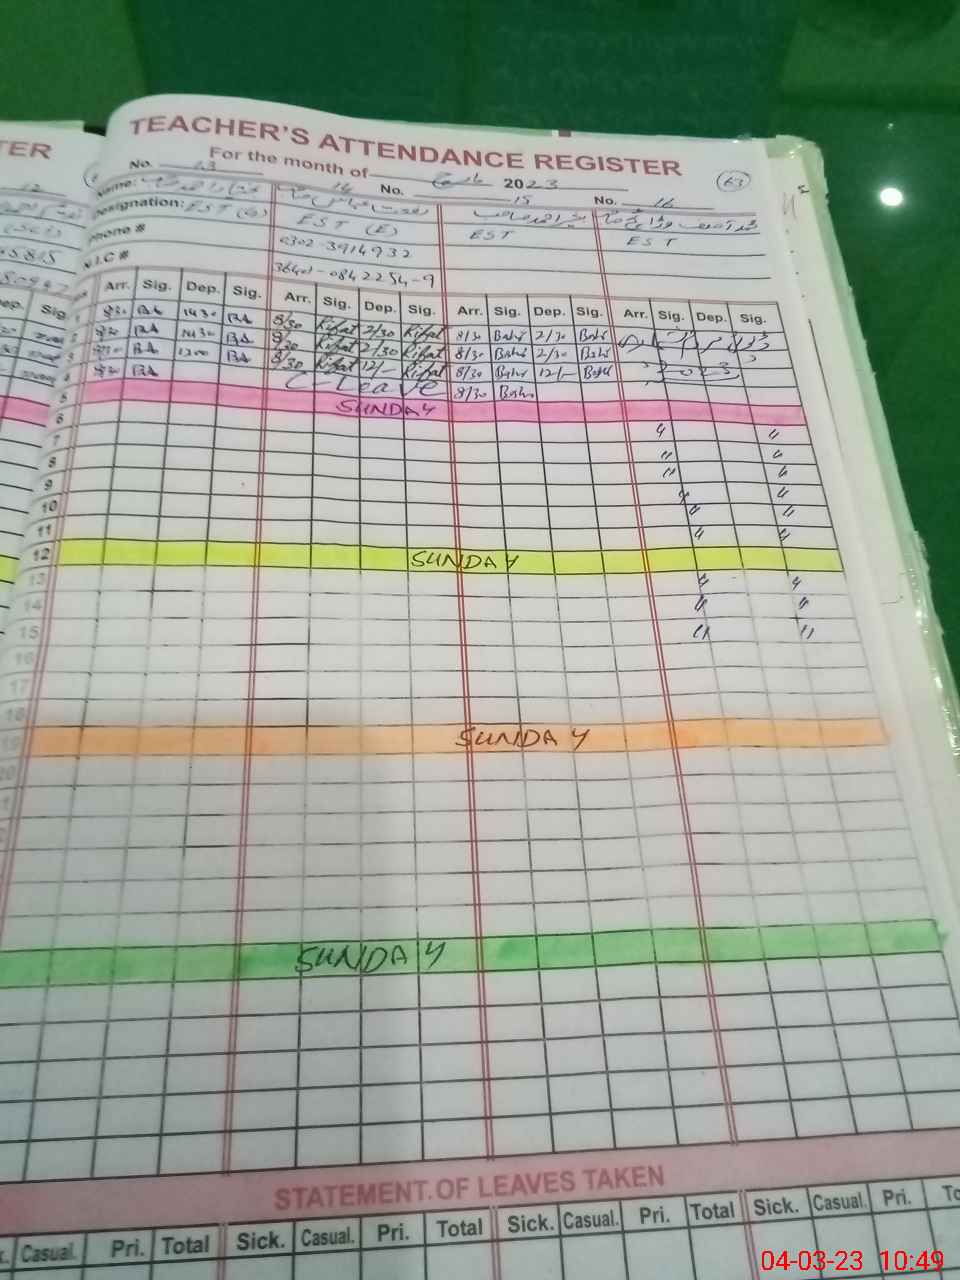 TER
TEACHER'S ATTENDANCE REGISTER
For the month of مارچ 2023
63
No. 13 14 No. 15 No. 16
Name:
Designation: EST (G) EST (E) EST EST
Phone # 0302-3914932
N.I.C # 36401-0842254-9
Arr. Sig. Dep. Sig. Arr. Sig. Dep. Sig. Arr. Sig. Dep. Sig. Arr. Sig. Dep. Sig.
1 830 BA 1430 BA 8/30 Rifat 2/30 Rifat 8/30 Bashir 2/30 Bashir
2 830 BA 1430 BA 8/30 Rifat 2/30 Rifat 8/30 Bashir 2/30 Bashir
3 830 BA 1200 BA 8/30 Rifat 12/- Rifat 8/30 Bashir 12/- Bashir 2023
4 830 BA C-Leave 8/30 Bashir
5 SUNDAY
6 " "
7 " "
8 " "
9 " "
10 " "
11 " "
12 SUNDAY
13 " "
14 " "
15 " "
16
17
18
19 SUNDAY
20
SUNDAY
STATEMENT OF LEAVES TAKEN
Casual. Pri. Total Sick. Casual. Pri. Total Sick. Casual. Pri. Total Sick. Casual. Pri.
04-03-23 10:49